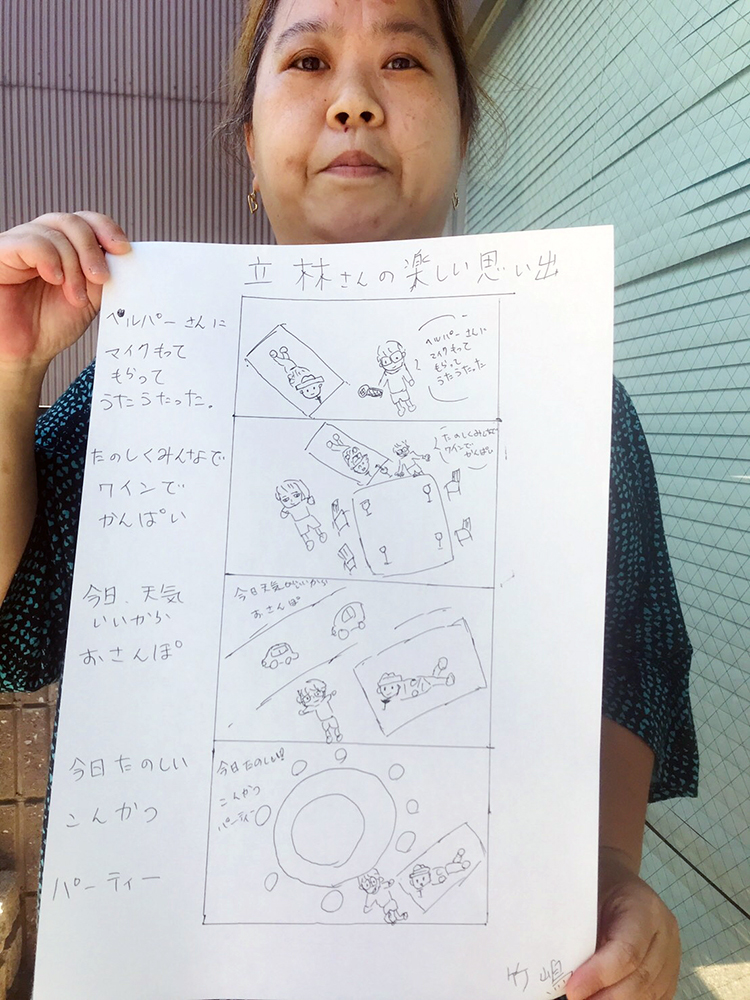 立林さんの楽しい思い出
ヘルパーさんに
マイクもって
もらって
うたうたった。
ヘルパーさんに
マイクもって
もらって
うたうたった
たのしくみんなで
ワインで
かんぱい
たのしくみんなで
ワインで
かんぱい
今日、天気
いいから
おさんぽ
今日天気いいから
おさんぽ
今日たのしい
こんかつ
パーティー
今日たのしい!
こんかつ
パーティー
竹嶋